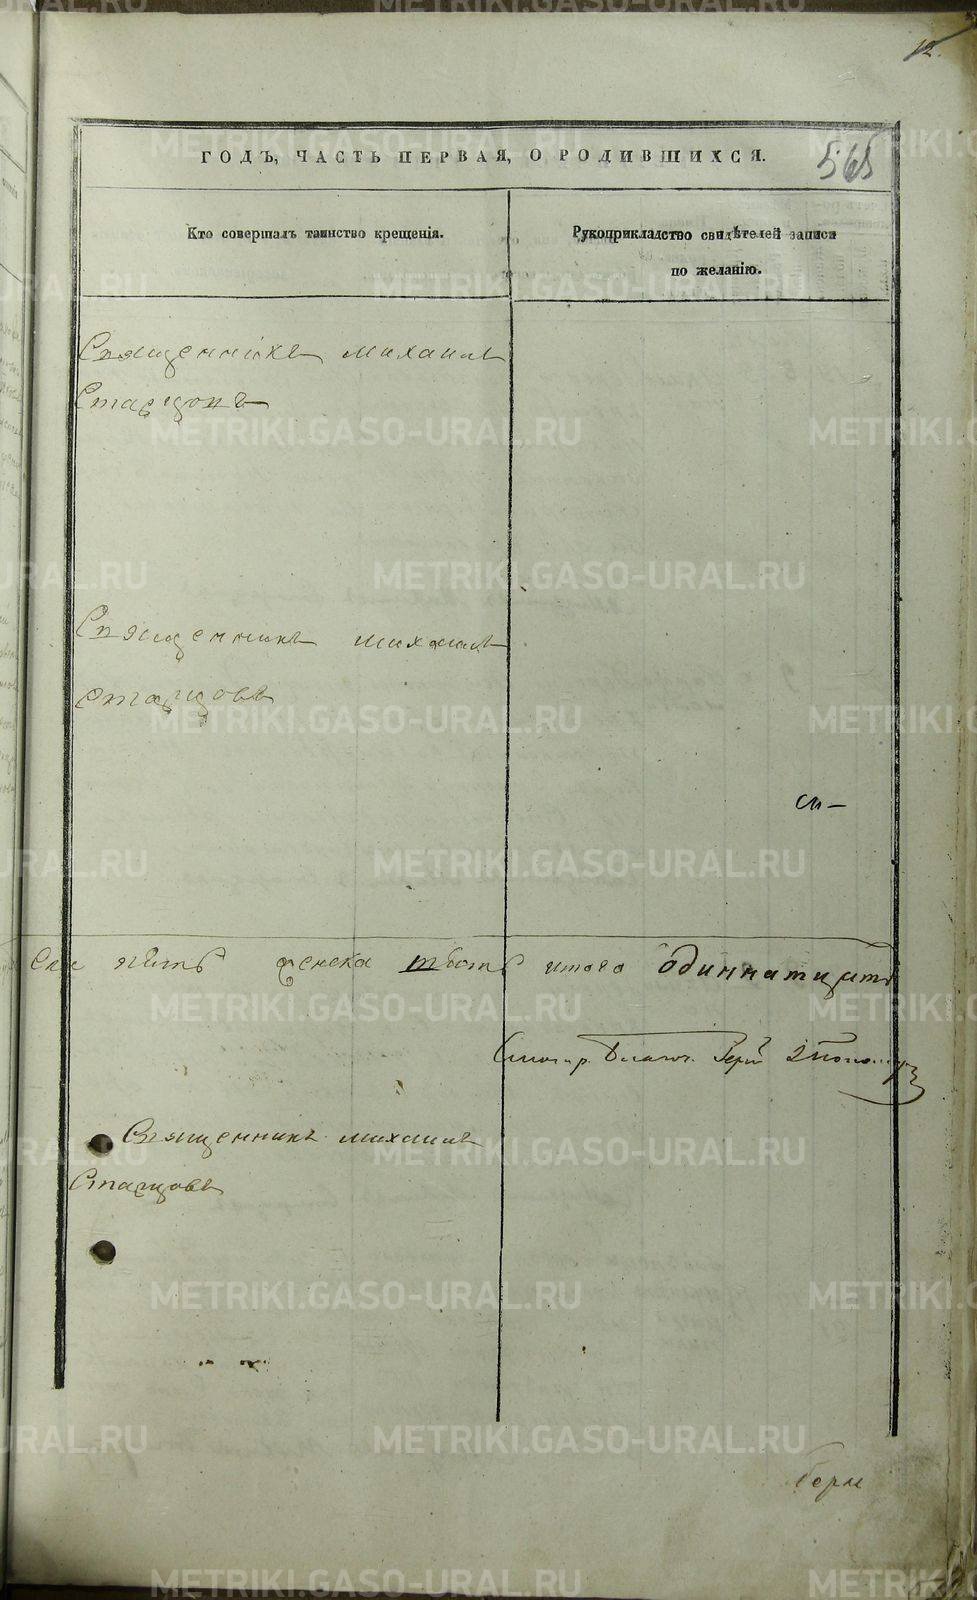 12.
ГОДЪ, ЧАСТЬ ПЕРВАЯ, О РОДИВШИХСЯ.
565
Кто совершалъ таинство крещенія.
Рукоприкладство свидѣтелей записи
по желанію.
Священникъ Михаилъ
Старцовъ
Священникъ Михаилъ
Старцовъ
женска итого одиннатцать
Священникъ Михаилъ
Старцовъ
METRIKI.GASO-URAL.RU